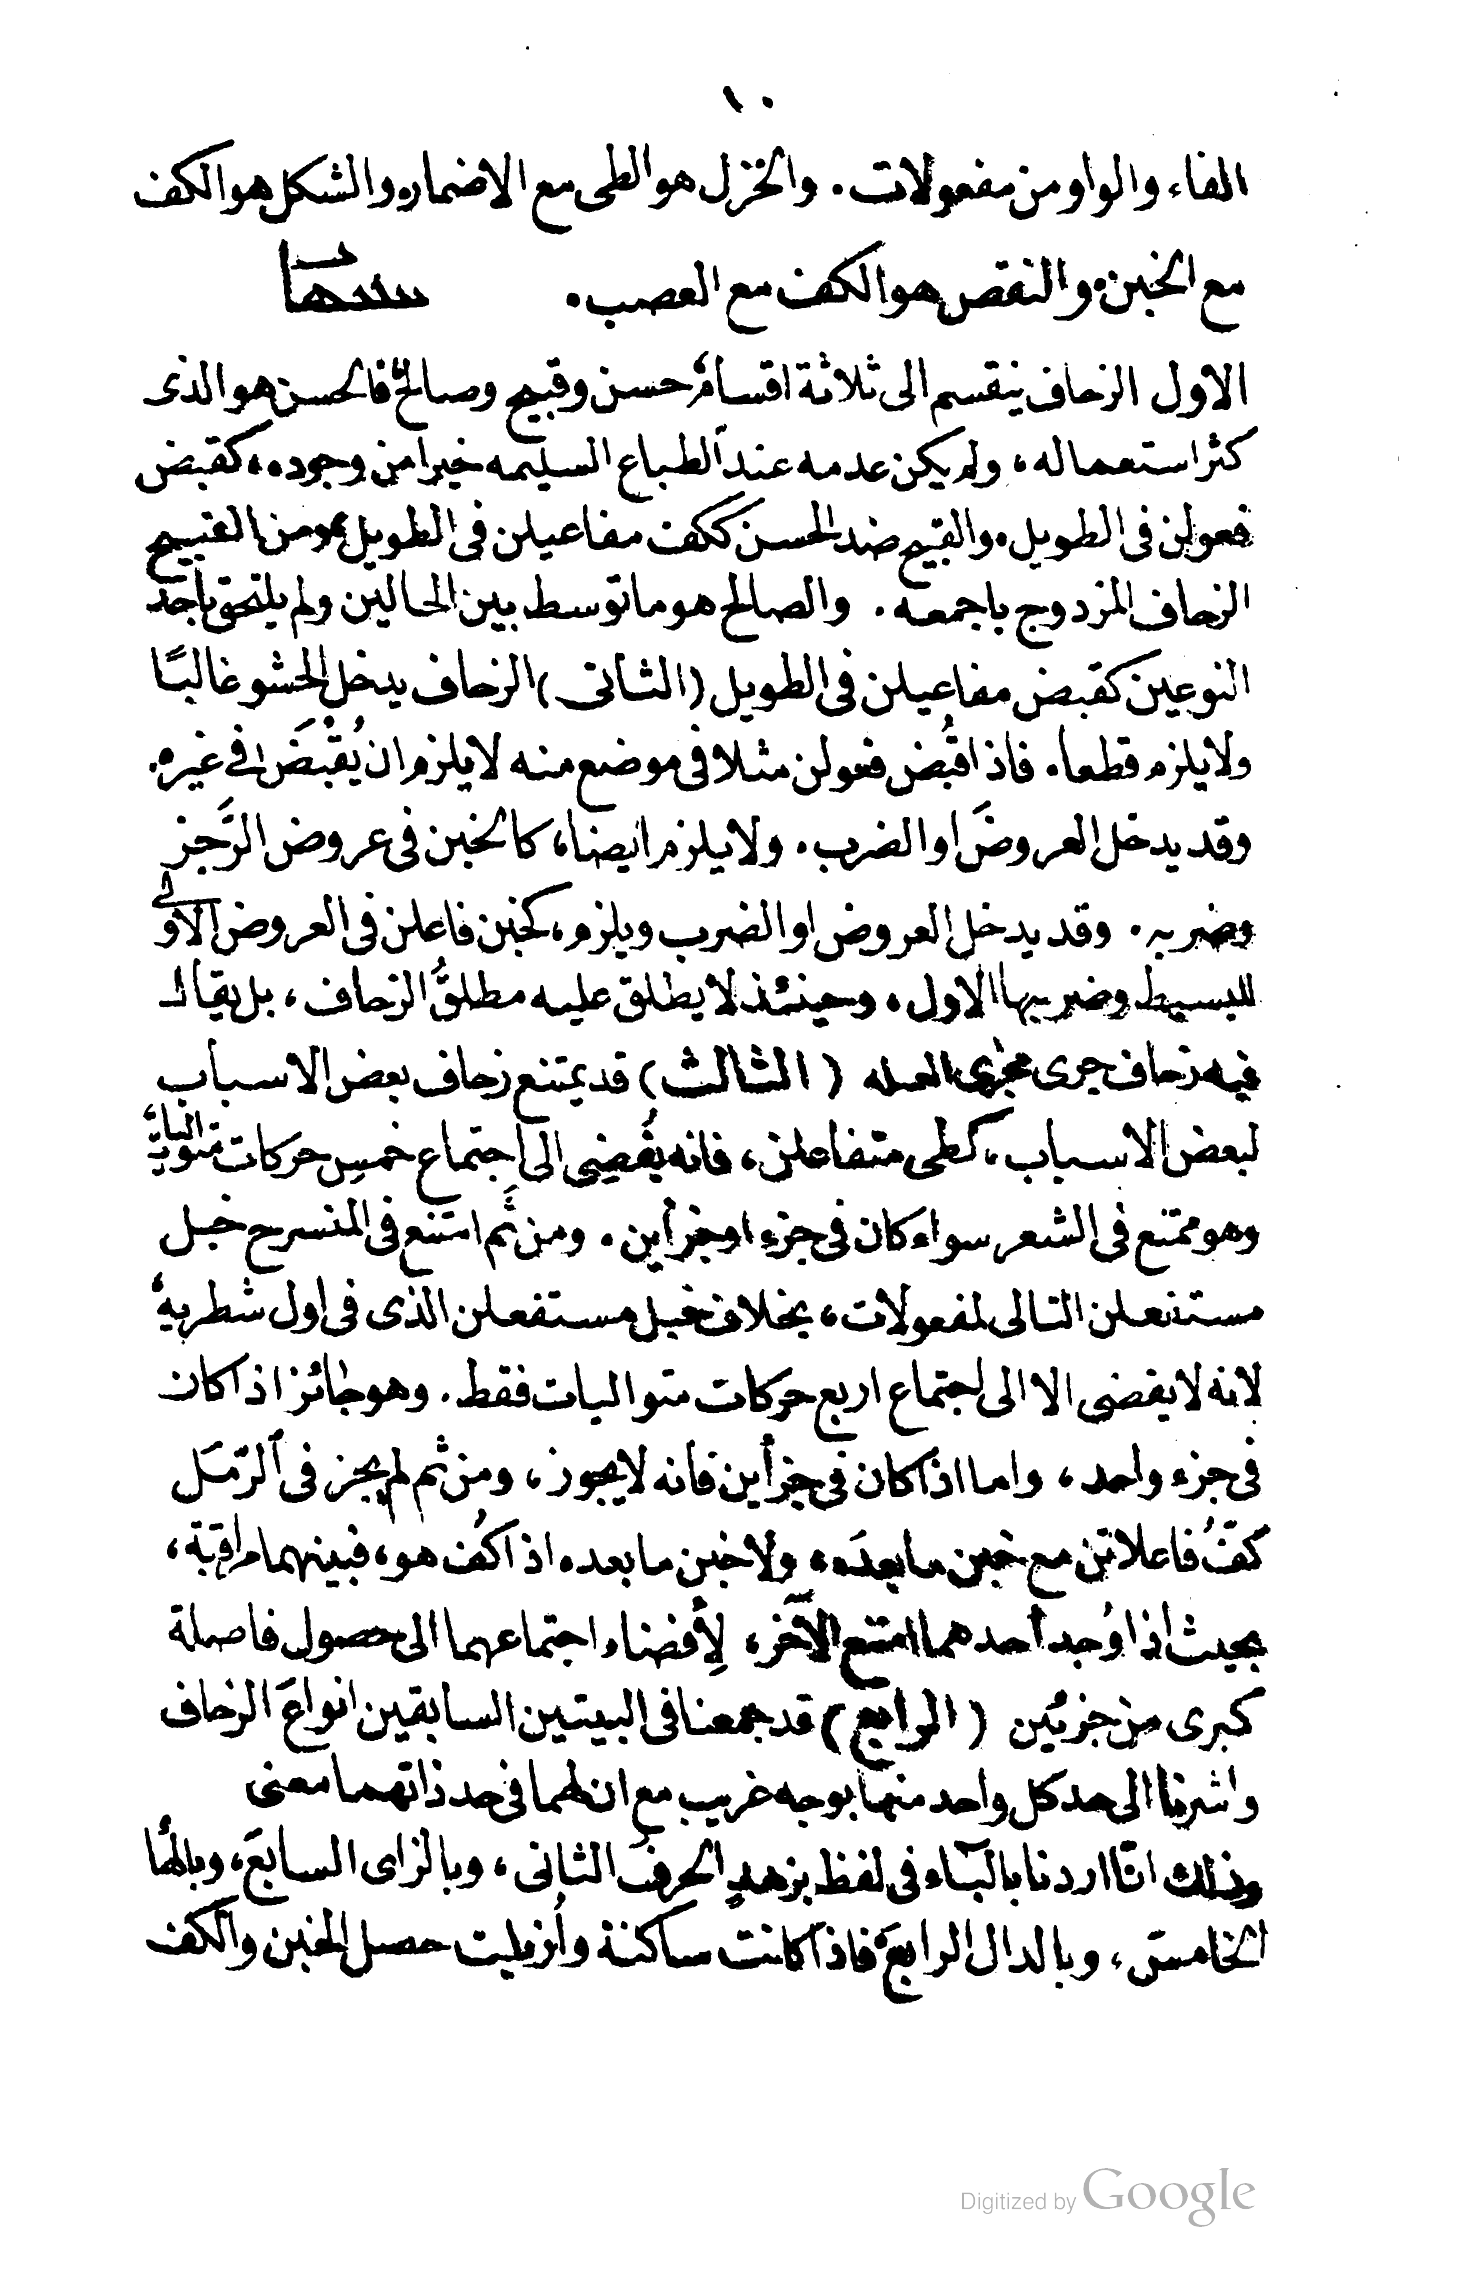 ١٠
الفاء والواو من مفعولات. والخزل هو الطى مع الاضمار. والشكل هو الكف
مع الخبن. والنقص هو الكف مع العصب. تنبيهات
الاول الزحاف ينقسم الى ثلاثة اقسام، حسن وقبيح وصالح، فالحسن هو الذى
كثر استعماله، ولم يكن عدمه عند الطباع السليمه خيرا من وجوده، كقبض
فعولن فى الطويل. والقبيح ضد الحسن ككف مفاعيلن فى الطويل، ومن القبيح
الزحاف المزدوج باجمعه. والصالح هو ما توسط بين الحالين ولم يلتحق باحد
النوعين كقبض مفاعيلن فى الطويل (الثانى) الزحاف يدخل الحشو غالبًا
ولا يلزم قطعا. فاذا قُبض فعولن مثلا فى موضع منه لا يلزم ان يُقْبَضَ فى غيره.
وقد يدخل العروضَ او الضرب. ولا يلزم ايضا، كالخبن فى عروض الرَّجز
وضربه. وقد يدخل العروض او الضرب ويلزم، كخبن فاعلن فى العروض الاولى
للبسيط وضربها الاول. وحينئذ لا يطلق عليه مطلقُ الزحاف، بل يقال
فيه زحاف جرى مجرى العله (الثالث) قد يمتنع زحاف بعض الاسباب
لبعض الاسباب، كطى متفاعلن، فانه يُفضِى الى اجتماع خمسِ حركات متواليات،
وهو ممتنع فى الشعر سواء كان فى جزء او جزأين. ومن ثَم امتنع فى المنسرح خبل
مستفعلن التالى لمفعولات، بخلاف خبل مستفعلن الذى فى اول شطريه،
لانه لا يفضى الا الى اجتماع اربع حركات متواليات فقط. وهو جائز اذا كان
فى جزء واحد، واما اذا كان فى جزأين فانه لا يجوز، ومن ثم لم يجز فى الرّمَل
كفُّ فاعلاتن مع خبن ما بعدَه، ولا خبن ما بعده اذا كُف هو، فبينهما مراقبة،
بحيث اذا وُجد أحدهما امتنع الآخر، لِأفضاء اجتماعهما الى حصول فاصلة
كبرى من جزئين (الرابع) قد جمعنا فى البيتين السابقين انواعَ الزحاف
واشرنا الى حد كل واحد منها بوجه غريب مع ان لهما فى حد ذاتهما معنى
وذلك انّا اردنا بالباء فى لفظ بزهدٍ الحرفَ الثانى، وبالزاى السابعَ، وبالهاء
الخامسَ، وبالدال الرابعَ، فاذا كانت ساكنة وأُزيلت حصل الخبن والكف
Digitized by Google